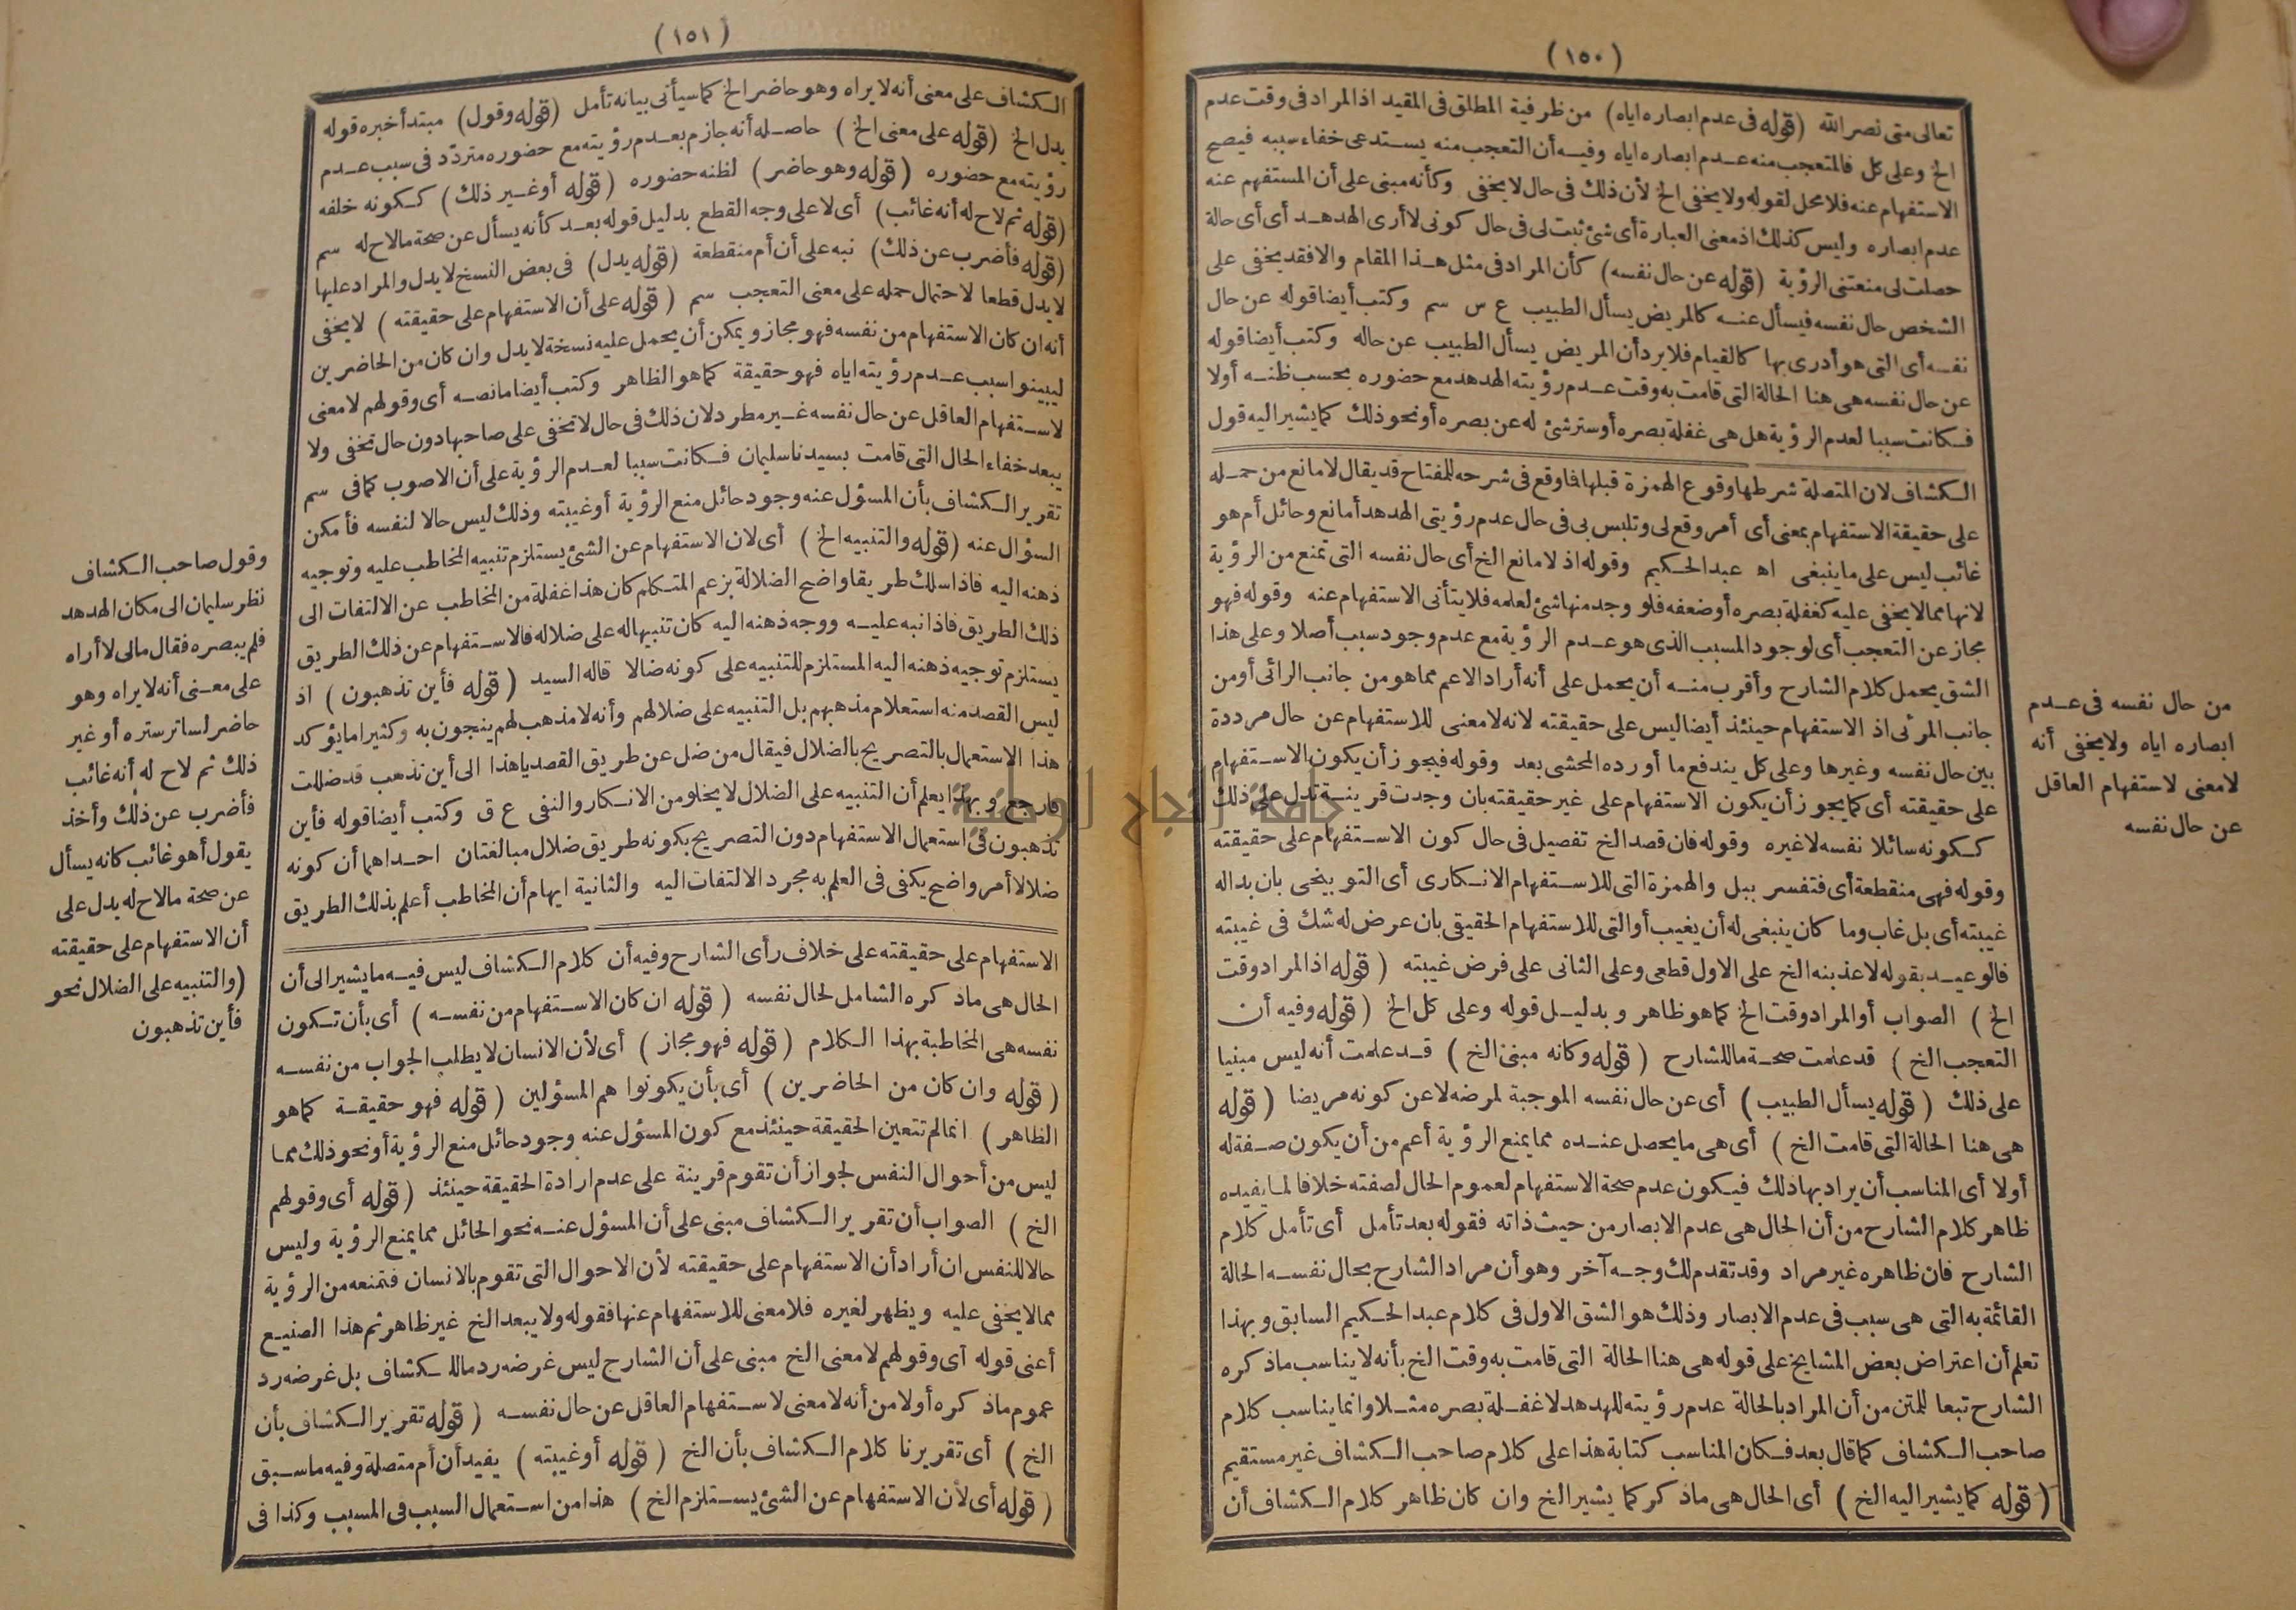 (١٥٠)
تعالى متى نصر الله (قوله فى عدم ابصاره اياه) من ظرفية المطلق فى المقيد اذ المراد فى وقت عدم
الخ وعلى كل فالمتعجب منه عدم ابصاره اياه وفيه أن التعجب منه يستدعى خفاء سببه فيصح
الاستفهام عنه فلا محل لقوله ولا يخفى الخ لأن ذلك فى حال لا يخفى وكأنه مبنى على أن المستفهم عنه
عدم ابصاره وليس كذلك اذ معنى العبارة أى شئ ثبت لى فى حال كونى لا أرى الهدهد أى أى حالة
حصلت لى منعتنى الرؤية (قوله عن حال نفسه) كأن المراد فى مثل هذا المقام والا فقد يخفى على
الشخص حال نفسه فيسأل عنه كالمريض يسأل الطبيب ع س سم وكتب أيضا قوله عن حال
نفسه أى التى هو أدرى بها كالقيام فلا يرد أن المريض يسأل الطبيب عن حاله وكتب أيضا قوله
عن حال نفسه هى هنا الحالة التى قامت به وقت عدم رؤيته الهدهد مع حضوره بحسب ظنه أولا
فكانت سببا لعدم الرؤية هل هى غفلة بصره أو ستر شئ له عن بصره أو نحو ذلك كما يشير اليه قول
الكشاف لان المتصلة شرطها وقوع الهمزة قبلها فاوقع فى شرحه للمفتاح قد يقال لا مانع من حمله
على حقيقة الاستفهام بمعنى أى أمر وقع لى وتلبس بى فى حال عدم رؤيتى الهدهد أمانع وحائل أم هو
غائب ليس على ما ينبغى اه عبد الحكيم وقوله اذ لا مانع الخ أى حال نفسه التى تمنع من الرؤية
لانها مما لا يخفى عليه كغفلة بصره أو ضعفه فلو وجد منها شئ لعلمه فلا يتأتى الاستفهام عنه وقوله فهو
مجاز عن التعجب أى لوجود المسبب الذى هو عدم الرؤية مع عدم وجود سبب أصلا وعلى هذا
الشق يحمل كلام الشارح وأقرب منه أن يحمل على أنه أراد الاعم مما هو من جانب الرائى أو من
جانب المرئى اذ الاستفهام حينئذ أيضا ليس على حقيقته لانه لا معنى للاستفهام عن حال مرددة
بين حال نفسه وغيرها وعلى كل يندفع ما أورده المحشى بعد وقوله فيجوز أن يكون الاستفهام
على حقيقته أى كما يجوز أن يكون الاستفهام على غير حقيقته بان وجدت قرينة تدل على ذلك
ككونه سائلا نفسه لا غيره وقوله فان قصد الخ تفصيل فى حال كون الاستفهام على حقيقته
وقوله فهى منقطعة أى فتفسر ببل والهمزة التى للاستفهام الانكارى أى التوبيخى بان بدا له
غيبته أى بل غاب وما كان ينبغى له أن يغيب أو التى للاستفهام الحقيقى بان عرض له شك فى غيبته
فالوعيد بقوله لاعذبنه الخ على الاول قطعى وعلى الثانى على فرض غيبته (قوله اذ المراد وقت
الخ) الصواب أو المراد وقت الخ كما هو ظاهر وبدليل قوله وعلى كل الخ (قوله وفيه أن
التعجب الخ) قد علمت صحة ما للشارح (قوله وكانه مبنى الخ) قد علمت أنه ليس مبنيا
على ذلك (قوله يسأل الطبيب) أى عن حال نفسه الموجبة لمرضه لا عن كونه مريضا (قوله
هى هنا الحالة التى قامت الخ) أى هى ما يحصل عنده مما يمنع الرؤية أعم من أن يكون صفة له
أولا أى المناسب أن يراد بها ذلك فيكون عدم صحة الاستفهام لعموم الحال لصفته خلافا لما يفيده
ظاهر كلام الشارح من أن الحال هى عدم الابصار من حيث ذاته فقوله بعد تأمل أى تأمل كلام
الشارح فان ظاهره غير مراد وقد تقدم لك وجه آخر وهو أن مراد الشارح بحال نفسه الحالة
القائمة به التى هى سبب فى عدم الابصار وذلك هو الشق الاول فى كلام عبد الحكيم السابق وبهذا
تعلم أن اعتراض بعض المشايخ على قوله هى هنا الحالة التى قامت به وقت الخ بأنه لا يناسب ما ذكره
الشارح تبعا للمتن من أن المراد بالحالة عدم رؤيته للهدهد لا غفلة بصره مثلا وانما يناسب كلام
صاحب الكشاف كما قال بعد فكان المناسب كتابة هذا على كلام صاحب الكشاف غير مستقيم
(قوله كما يشير اليه الخ) أى الحال هى ما ذكر كما يشير الخ وان كان ظاهر كلام الكشاف أن
من حال نفسه فى عدم
ابصاره اياه ولا يخفى أنه
لا معنى لاستفهام العاقل
عن حال نفسه
(١٥١)
الكشاف على معنى أنه لا يراه وهو حاضر الخ كما سيأتى بيانه تأمل (قوله وقول) مبتدأ خبره قوله
يدل الخ (قوله على معنى الخ) حاصله أنه جازم بعدم رؤيته مع حضوره متردد فى سبب عدم
رؤيته مع حضوره (قوله وهو حاضر) لظنه حضوره (قوله أو غير ذلك) ككونه خلفه
(قوله ثم لاح له أنه غائب) أى لا على وجه القطع بدليل قوله بعد كأنه يسأل عن صحة ما لاح له سم
(قوله فأضرب عن ذلك) نبه على أن أم منقطعة (قوله يدل) فى بعض النسخ لا يدل والمراد عليها
لا يدل قطعا لاحتمال حمله على معنى التعجب سم (قوله على أن الاستفهام على حقيقته) لا يخفى
أنه ان كان الاستفهام من نفسه فهو مجاز ويمكن أن يحمل عليه نسخة لا يدل وان كان من الحاضرين
ليبينوا سبب عدم رؤيته اياه فهو حقيقة كما هو الظاهر وكتب أيضا ما نصه أى وقولهم لا معنى
لاستفهام العاقل عن حال نفسه غير مطرد لان ذلك فى حال لا تخفى على صاحبها دون حال تخفى ولا
يبعد خفاء الحال التى قامت بسيدنا سليمان فكانت سببا لعدم الرؤية على أن الاصوب كما فى سم
تقرير الكشاف بأن المسؤل عنه وجود حائل منع الرؤية أو غيبته وذلك ليس حالا لنفسه فأمكن
السؤال عنه (قوله والتنبيه الخ) أى لان الاستفهام عن الشئ يستلزم تنبيه المخاطب عليه وتوجيه
ذهنه اليه فاذا سلك طريقا واضح الضلالة بزعم المتكلم كان هذا غفلة من المخاطب عن الالتفات الى
ذلك الطريق فاذا نبه عليه ووجه ذهنه اليه كان تنبيها له على ضلاله فالاستفهام عن ذلك الطريق
يستلزم توجيه ذهنه اليه المستلزم للتنبيه على كونه ضالا قاله السيد (قوله فأين تذهبون) اذ
ليس القصد منه استعلام مذهبهم بل التنبيه على ضلالهم وأنه لا مذهب لهم ينجون به وكثيرا ما يؤكد
هذا الاستعمال بالتصريح بالضلال فيقال من ضل عن طريق القصد يا هذا الى أين تذهب قد ضللت
فارجع وبهذا يعلم أن التنبيه على الضلال لا يخلو من الانكار والنفى ع ق وكتب أيضا قوله فأين
تذهبون فى استعمال الاستفهام دون التصريح بكونه طريق ضلال مبالغتان احداهما أن كونه
ضلالا أمر واضح يكفى فى العلم به مجرد الالتفات اليه والثانية ايهام أن المخاطب أعلم بذلك الطريق
الاستفهام على حقيقته على خلاف رأى الشارح وفيه أن كلام الكشاف ليس فيه ما يشير الى أن
الحال هى ما ذكره الشامل لحال نفسه (قوله ان كان الاستفهام من نفسه) أى بأن تكون
نفسه هى المخاطبة بهذا الكلام (قوله فهو مجاز) أى لأن الانسان لا يطلب الجواب من نفسه
(قوله وان كان من الحاضرين) أى بأن يكونوا هم المسؤلين (قوله فهو حقيقة كما هو
الظاهر) انما لم تتعين الحقيقة حينئذ مع كون المسؤل عنه وجود حائل منع الرؤية أو نحو ذلك مما
ليس من أحوال النفس لجواز أن تقوم قرينة على عدم ارادة الحقيقة حينئذ (قوله أى وقولهم
الخ) الصواب أن تقرير الكشاف مبنى على أن المسؤل عنه نحو الحائل مما يمنع الرؤية وليس
حالا للنفس ان أراد أن الاستفهام على حقيقته لأن الاحوال التى تقوم بالانسان فتمنعه من الرؤية
مما لا يخفى عليه ويظهر لغيره فلا معنى للاستفهام عنها فقوله ولا يبعد الخ غير ظاهر ثم هذا الصنيع
أعنى قوله أى وقولهم لا معنى الخ مبنى على أن الشارح ليس غرضه رد ما للكشاف بل غرضه رد
عموم ما ذكره أولا من أنه لا معنى لاستفهام العاقل عن حال نفسه (قوله تقرير الكشاف بأن
الخ) أى تقريرنا كلام الكشاف بأن الخ (قوله أو غيبته) يفيد أن أم متصلة وفيه ما سبق
(قوله أى لأن الاستفهام عن الشئ يستلزم الخ) هذا من استعمال السبب فى المسبب وكذا فى
وقول صاحب الكشاف
نظر سليمان الى مكان الهدهد
فلم يبصره فقال مالى لا أراه
على معنى أنه لا يراه وهو
حاضر لساتر ستره أو غير
ذلك ثم لاح له أنه غائب
فأضرب عن ذلك وأخذ
يقول أهو غائب كانه يسأل
عن صحة ما لاح له يدل على
أن الاستفهام على حقيقته
(والتنبيه على الضلال نحو
فأين تذهبون
جامعة النجاح الوطنية